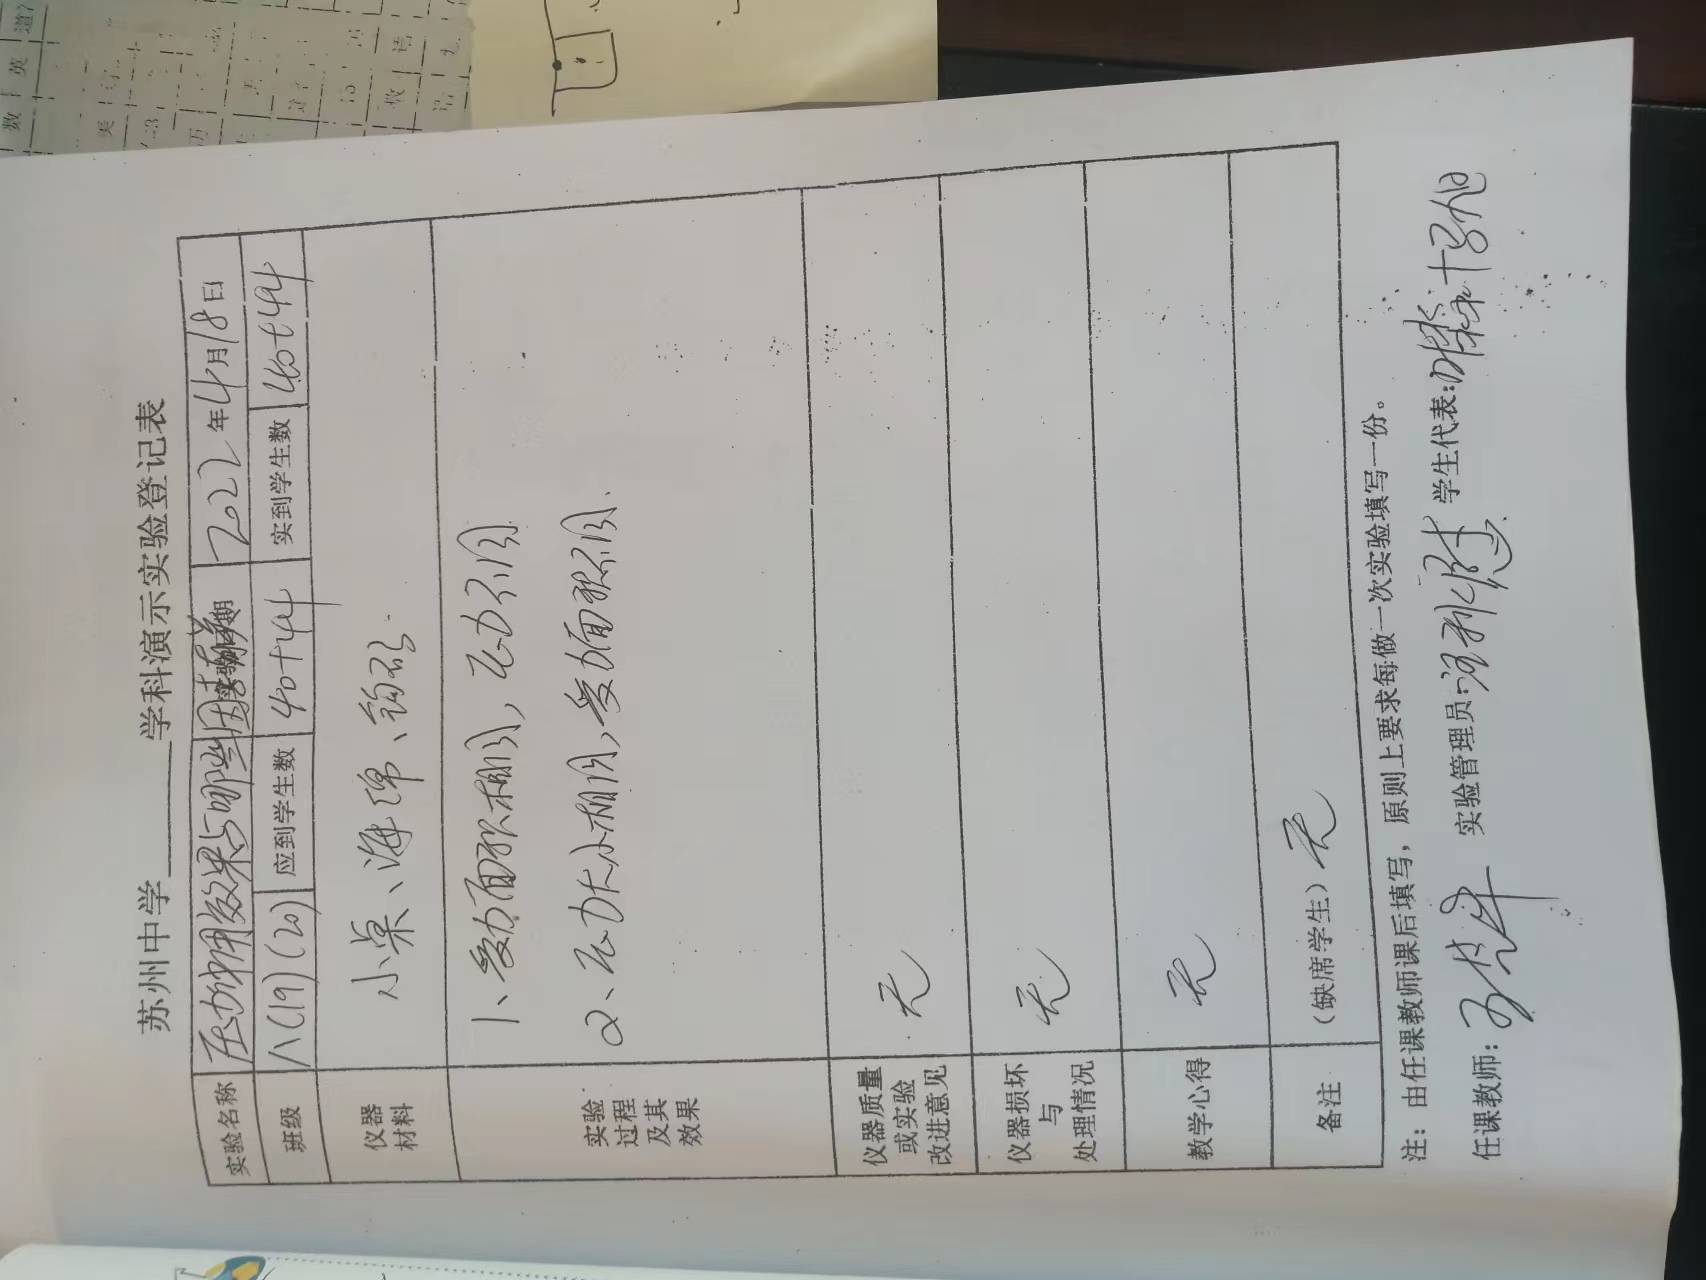 苏州中学______学科演示实验登记表
实验名称 压力作用效果与哪些因素有关 实验日期 2022年4月18日
班级 八(19)(20) 应到学生数 40+44 实到学生数 40+44
仪器材料 小桌、海绵、钩码.
实验过程及其效果
1、受力面积相同,压力不同
2、压力大小相同,受力面积不同.
仪器质量或实验改进意见 无
仪器损坏与处理情况 无
教学心得 无
备注 (缺席学生) 无
注：由任课教师课后填写，原则上要求每做一次实验填写一份。
任课教师: 实验管理员: 学生代表: